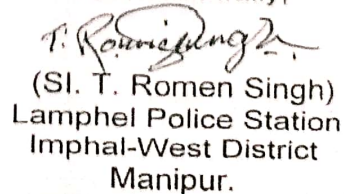 T. Romen Singh
(SI. T. Romen Singh)
Lamphel Police Station
Imphal-West District
Manipur.